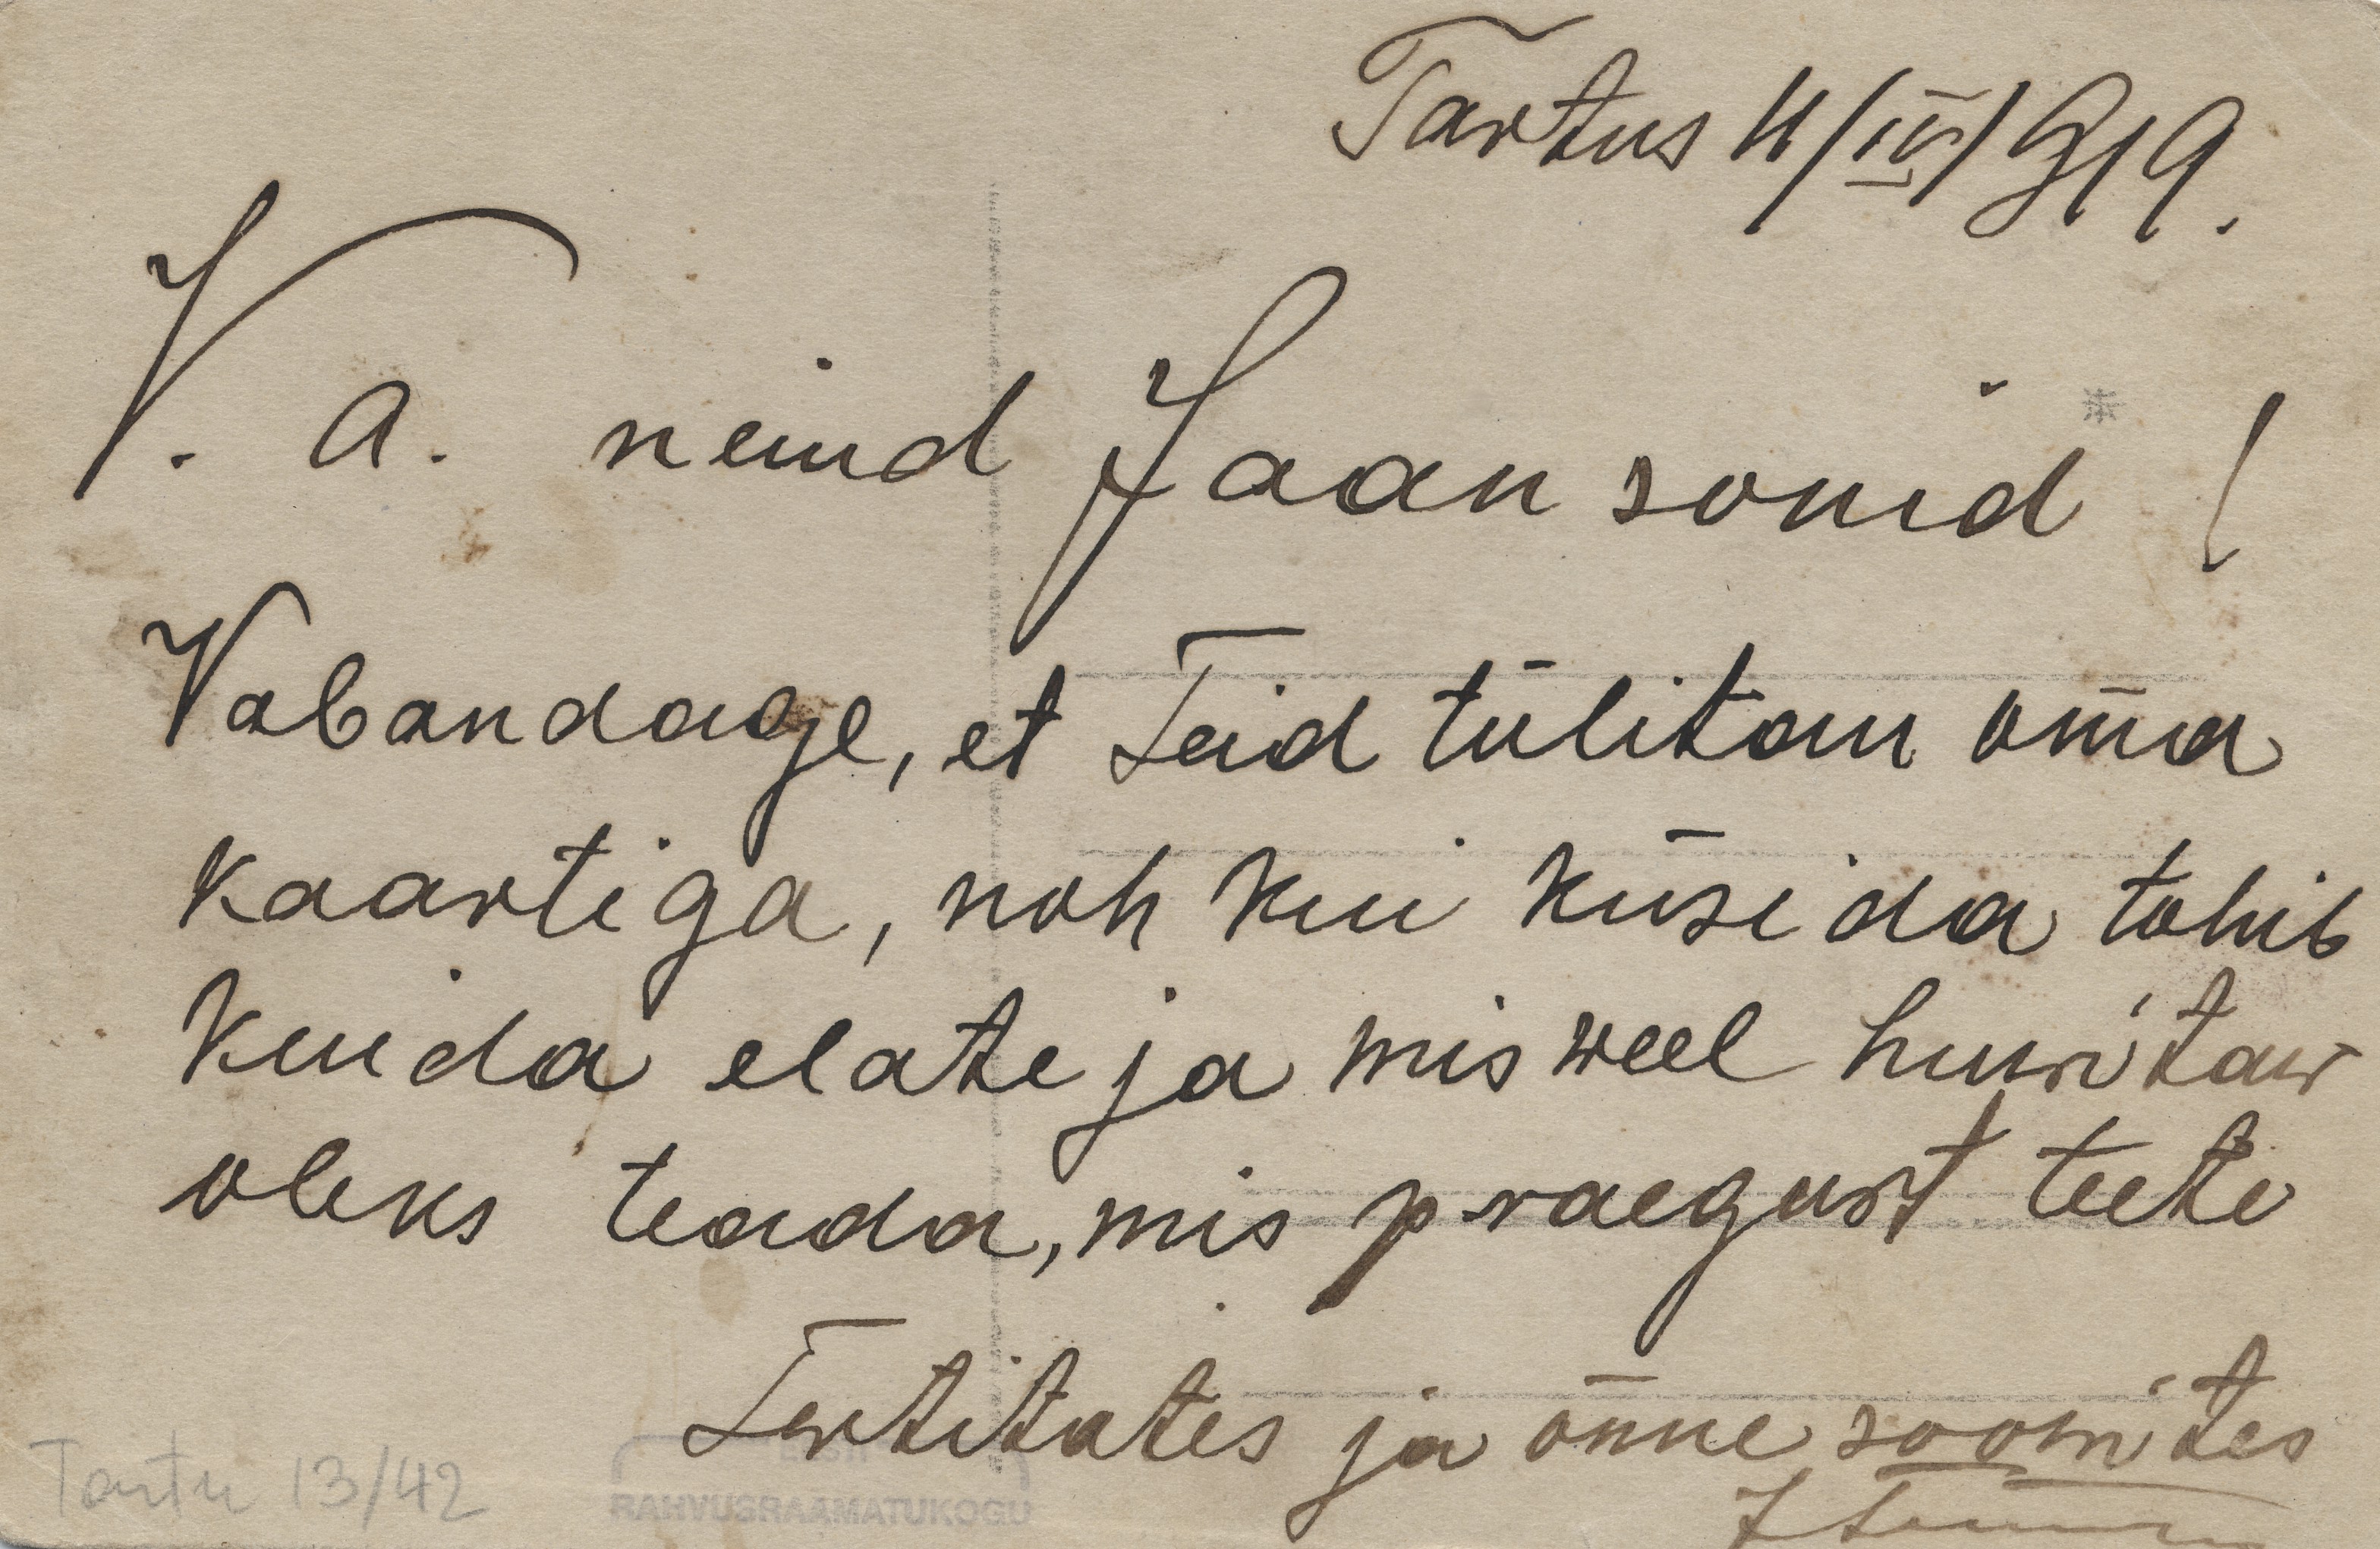 Tartus 11/IV/919.
V. a. neiud Jaansonid !
Vabandage, et Teid tülitan oma
kaartiga, noh kui küsida tohib
kuida elate ja mis weel huwitaw
oleks teada, mis praegust teete
Tertitates ja õnne soowites
Tartu 13/42
EESTI
RAHVUSRAAMATUKOGU